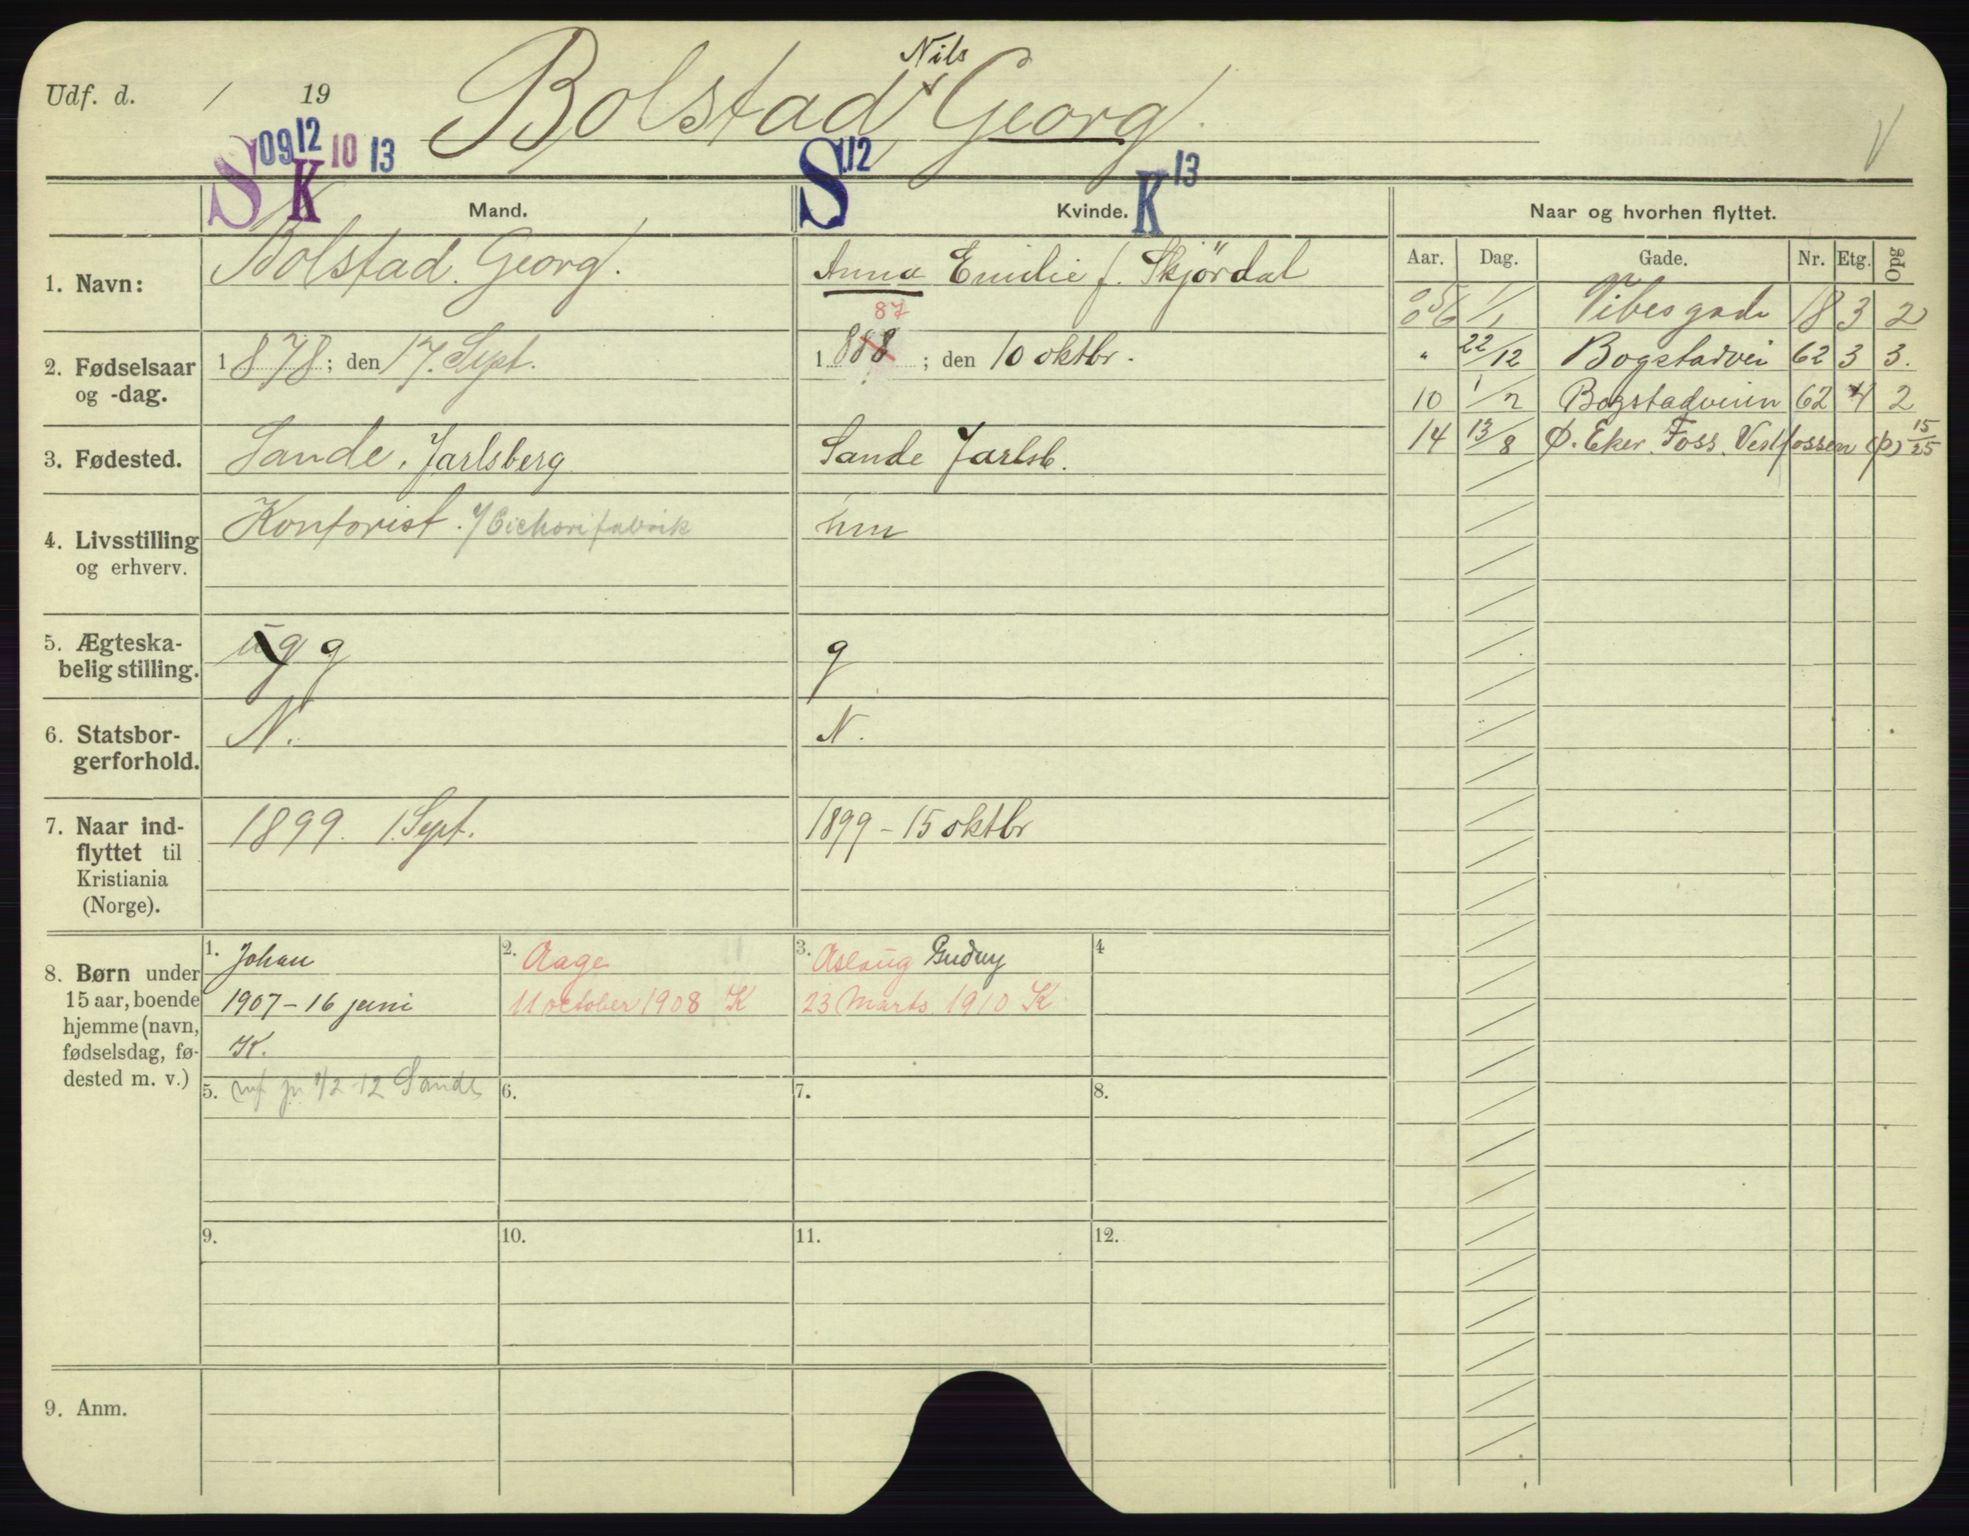 Nils
Udf. d. / 19 Bolstad Georg.
S 09 12 K 10 13 S 12 K 13
Mand. Kvinde. Naar og hvorhen flyttet.
1. Navn: Bolstad. Georg. Anna Emilie f. Skjördal
2. Fødselsaar og -dag. 1878; den 17. Sept. 87 1888; den 10 oktbr.
3. Fødested. Sande, Jarlsberg Sande Jarlsb.
4. Livsstilling og erhverv. Kontorist. / Cichorifabrik hm
5. Ægteskabelig stilling. ug g g
6. Statsborgerforhold. N. N.
7. Naar indflyttet til Kristiania (Norge). 1899. 1. Sept. 1899 - 15 oktbr
Aar. Dag. Gade. Nr. Etg. Opg
1/1 Vibesgade 18 3 2
" 22/12 Bogstadvei 62 3 3.
10 1/2 Bogstadveien 62 4 2
14 13/8 Ø. Eker. Foss. Vestfossen (p) 15/25
8. Børn under 15 aar, boende hjemme (navn, fødselsdag, fødested m. v.)
1. Johan
1907 - 16 juni
K.
2. Aage
11 october 1908 K
3. Aslaug Gudny
23 Marts 1910 K
4
5. 1/2 - 12 Sande
6.
7.
8.
9.
10.
11.
12.
9. Anm.